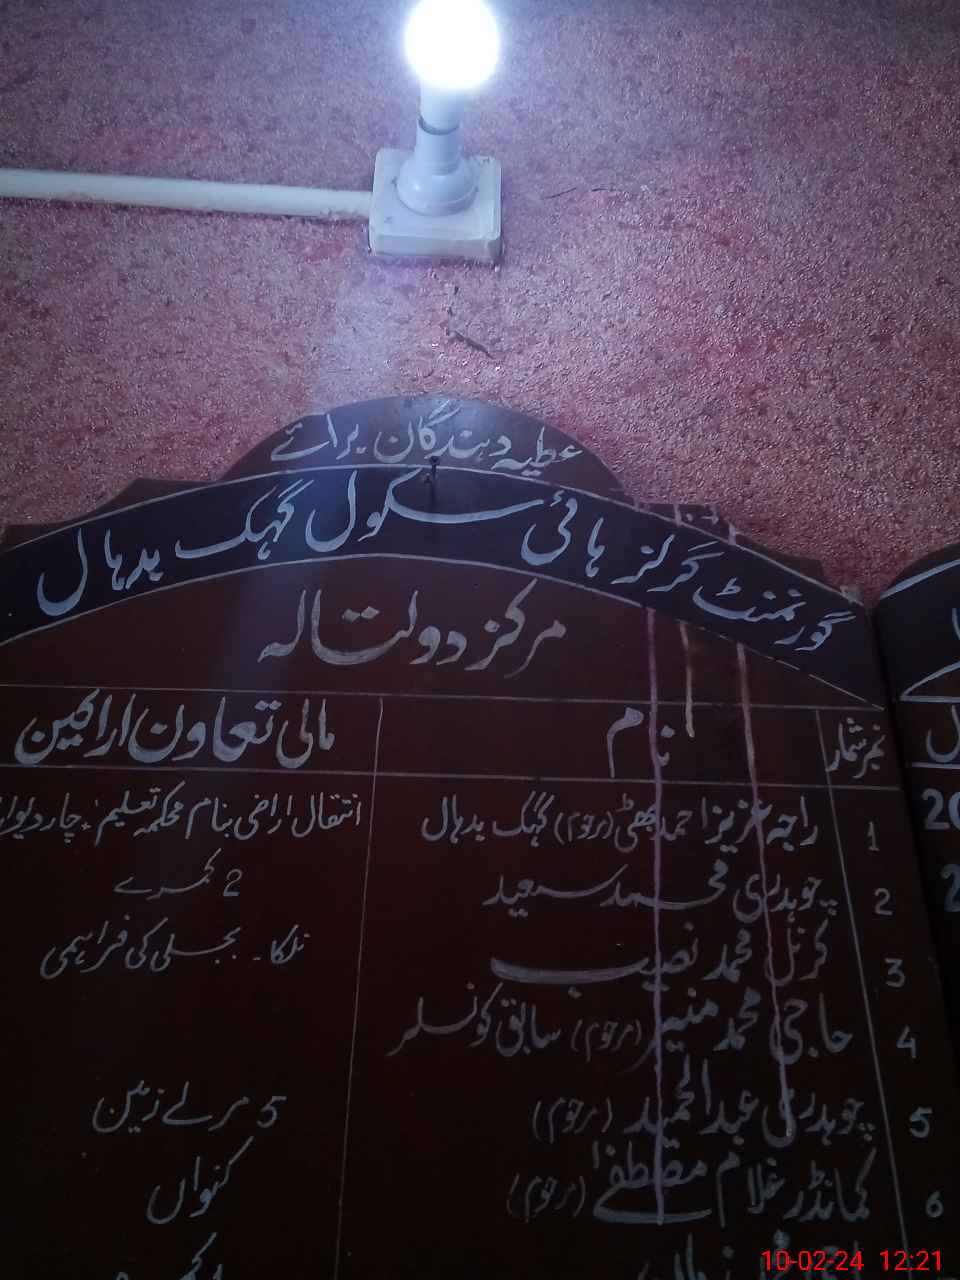 عطیہ دہندگان برائے
گورنمنٹ گرلز ہائی سکول گہک بدہال
مرکز دولتالہ
نمبر شمار نام مالی تعاون اراکین
1 راجہ عزیز احمد بھٹی (مرحوم) گہک بدہال انتقال اراضی بنام محکمہ تعلیم، چار دیواری
2 چوہدری محمد سعید 2 کمرے
3 کرنل محمد نصیب نلکا۔ بجلی کی فراہمی
4 حاجی محمد منیر (مرحوم) سابق کونسلر
5 چوہدری عبدالحمید (مرحوم) 5 مرلے زمین
6 کمانڈر غلام مصطفٰے (مرحوم) کنواں
10-02-24 12:21